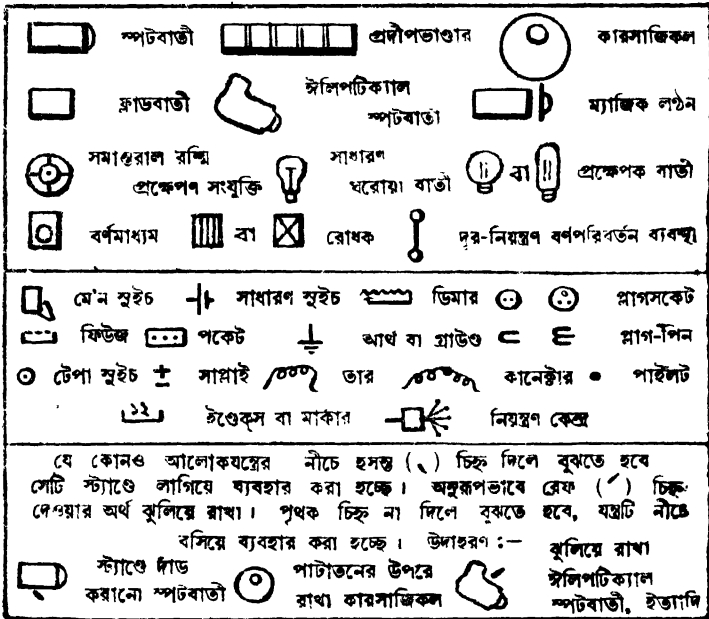 স্পটবাতী প্রদীপভাণ্ডার কারসাজিকল
ফ্লাডবাতী ঈলিপটিক্যাল স্পটবাতী ম্যাজিক লণ্ঠন
সমান্তরাল রশ্মি প্রক্ষেপণ সংযুক্তি সাধারণ ঘরোয়া বাতী বা প্রক্ষেপক বাতী
বর্ণমাধ্যম বা রোধক দূর-নিয়ন্ত্রণ বর্ণপরিবর্তন ব্যবস্থা
মে'ন সুইচ সাধারণ সুইচ ডিমার প্লাগসকেট
ফিউজ পকেট আর্থ বা গ্রাউণ্ড প্লাগ-পিন
টেপা সুইচ সাপ্লাই তার কানেক্টার পাইলট
১২ ইণ্ডেক্স বা মার্কার নিয়ন্ত্রণ কেন্দ্র
যে কোনও আলোকযন্ত্রের নীচে হসন্ত (্) চিহ্ন দিলে বুঝতে হবে
সেটি স্ট্যাণ্ডে লাগিয়ে ব্যবহার করা হচ্ছে। অনুরূপভাবে রেফ (র্) চিহ্ন
দেওয়ার অর্থ ঝুলিয়ে রাখা। পৃথক চিহ্ন না দিলে বুঝতে হবে, যন্ত্রটি নীচে
বসিয়ে ব্যবহার করা হচ্ছে। উদাহরণ :—
স্ট্যাণ্ডে দাঁড়
করানো স্পটবাতী
পাটাতনের উপরে
রাখা কারসাজিকল
ঝুলিয়ে রাখা
ঈলিপটিক্যাল
স্পটবাতী, ইত্যাদি